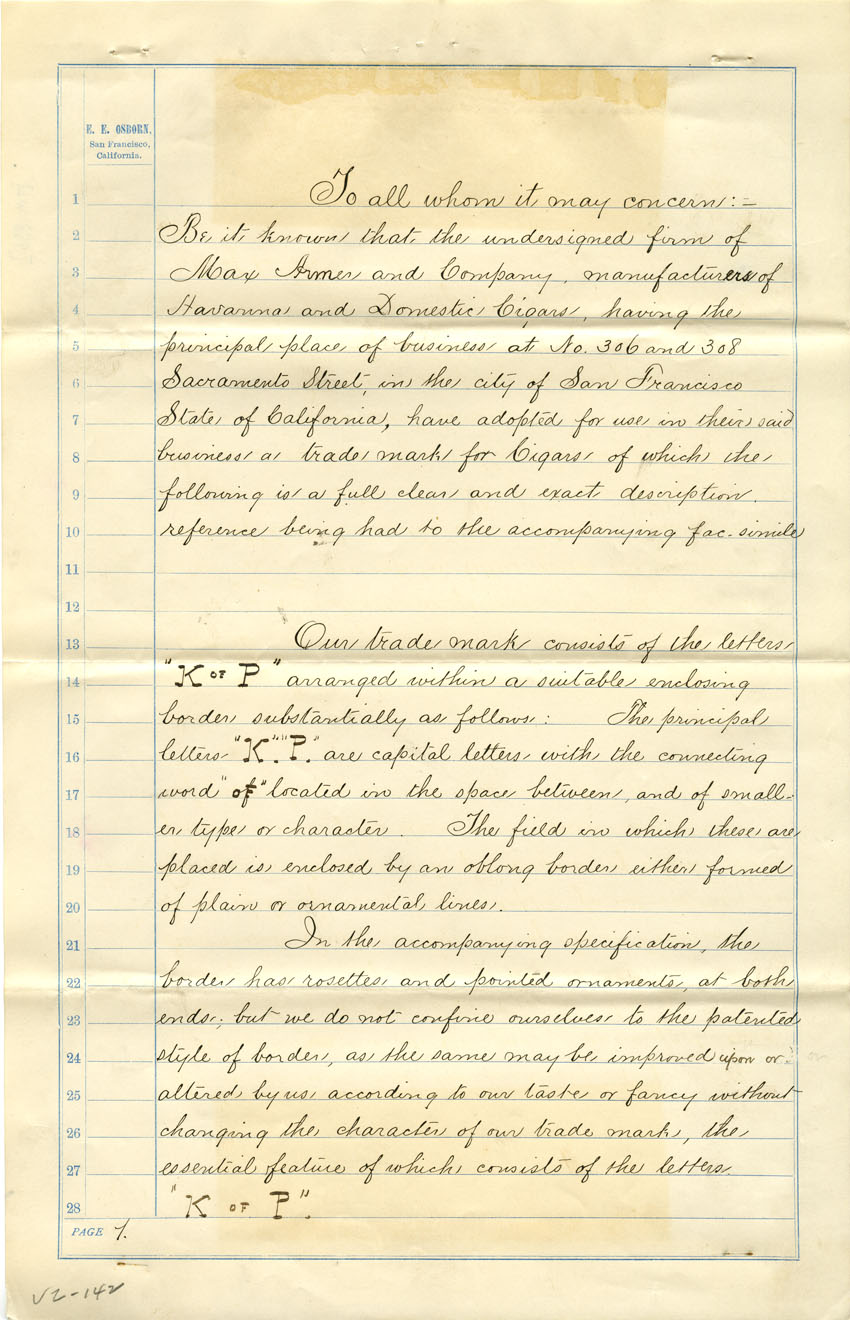 E. E. OSBORN,
San Francisco,
California.
1 To all whom it may concern:-
2 Be it known that the undersigned firm of
3 Max Armer and Company, manufacturers of
4 Havanna and Domestic Cigars, having the
5 principal place of business at No. 306 and 308
6 Sacramento Street, in the city of San Francisco
7 State of California, have adopted for use in their said
8 business a trade mark for Cigars of which the
9 following is a full clear and exact description.
10 reference being had to the accompanying fac-simile
11
12
13 Our trade mark consists of the letters
14 "K OF P" arranged within a suitable enclosing
15 border substantially as follows: The principal
16 letters "K". "P." are capital letters with the connecting
17 word "of" located in the space between, and of small-
18 er type or character. The field in which these are
19 placed is enclosed by an oblong border either formed
20 of plain or ornamental lines.
21 In the accompanying specification, the
22 border has rosettes and pointed ornaments, at both
23 ends; but we do not confine ourselves to the patented
24 style of border, as the same may be improved upon or
25 altered by us according to our taste or fancy without
26 changing the character of our trade mark, the
27 essential feature of which consists of the letters
28 "K OF P".
PAGE 1.
V2-142